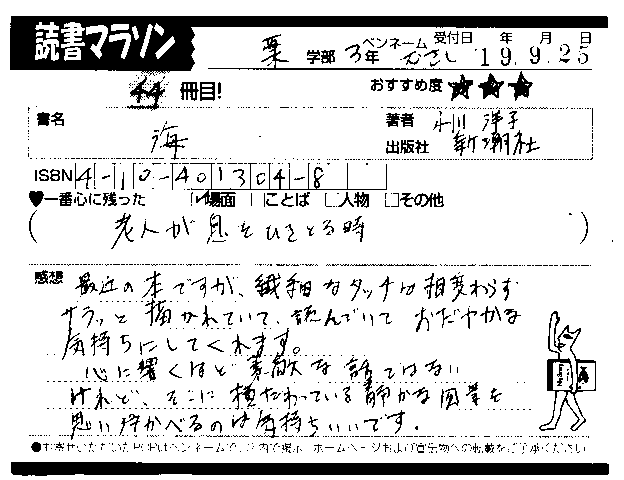 読書マラソン
薬 学部 3年 ペンネーム むさし 受付日 '19.9.25 年 月 日
44 冊目! おすすめ度 ★★★
書名 海
著者 小川 洋子
出版社 新潮社
ISBN 4-10-401304-8
♥一番心に残った 場面 □ことば □人物 □その他
( 老人が息をひきとる時 )
感想 最近の本ですが、繊細なタッチは相変わらず
サラッと描かれていて、読んでいて おだやかな
気持ちにしてくれます。
心に響くほど素敵な話ではない
けれど、そこに横たわっている静かな風景を
思い浮かべるのは気持ちいいです。
●お寄せいただいたPOPはペンネームで ホームページおよび宣伝物への転載をご了承ください